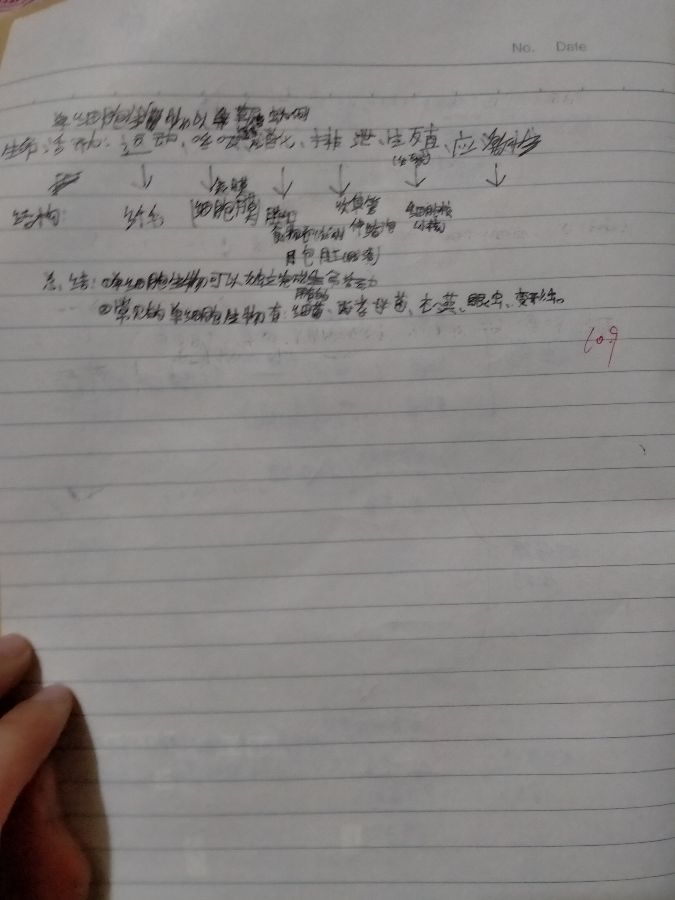 No. Date
单细胞生物 以草履虫为例
生命活动: 运动、呼吸、消化、排泄、生殖、应激性
(分裂)
表膜
结构: 纤毛 (细胞膜) 收集管 细胞核
食物泡 伸缩泡
胞肛
总结: ①单细胞生物可以独立完成生命活动
②常见的单细胞生物有: 细菌、酵母菌、衣藻、眼虫、变形虫。
10.9